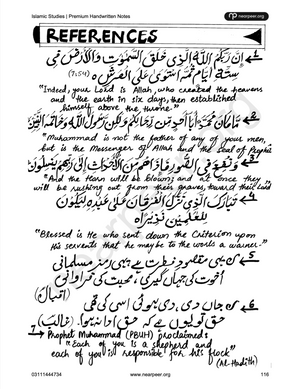 Islamic Studies | Premium Handwritten Notes
nearpeer.org
REFERENCES
1- إِنَّ رَبَّكُمُ اللَّهُ الَّذِي خَلَقَ السَّمَاوَاتِ وَالْأَرْضَ فِي
سِتَّةِ أَيَّامٍ ثُمَّ اسْتَوَىٰ عَلَى الْعَرْشِ (7:54)
"Indeed, your Lord is Allah, who created the heavens
and the earth in six days, then established
himself above the throne."
2- مَا كَانَ مُحَمَّدٌ أَبَا أَحَدٍ مِنْ رِجَالِكُمْ وَلَكِنْ رَسُولَ اللَّهِ وَخَاتَمَ النَّبِيِّينَ
"Muhammad is not the father of any of your men,
but is the Messenger of Allah and the seal of Prophets
3- وَنُفِخَ فِي الصُّورِ فَإِذَا هُمْ مِنَ الْأَجْدَاثِ إِلَىٰ رَبِّهِمْ يَنْسِلُونَ
"And the Horn will be blown; and at once they
will be rushing out from their graves, toward their Lord
4- تَبَارَكَ الَّذِي نَزَّلَ الْفُرْقَانَ عَلَىٰ عَبْدِهِ لِيَكُونَ
لِلْعَالَمِينَ نَذِيرًا
"Blessed is He who sent down the Criterion upon
His servants that he may be to the worlds a warner."
5- یہی مقصودِ فطرت ہے یہی رمزِ مسلمانی
اخوت کی جہاں گیری، محبت کی فراوانی
(اقبال)
6- جاں دی، دی ہوئی اسی کی تھی
حق تو یوں ہے کہ حق ادا نہ ہوا۔ (غالب)
7- Prophet Muhammad (PBUH) proclaimed:
"Each of you is a shepherd and
each of you is responsible for his flock"
(Al-Hadith)
03111444734
www.nearpeer.org
116